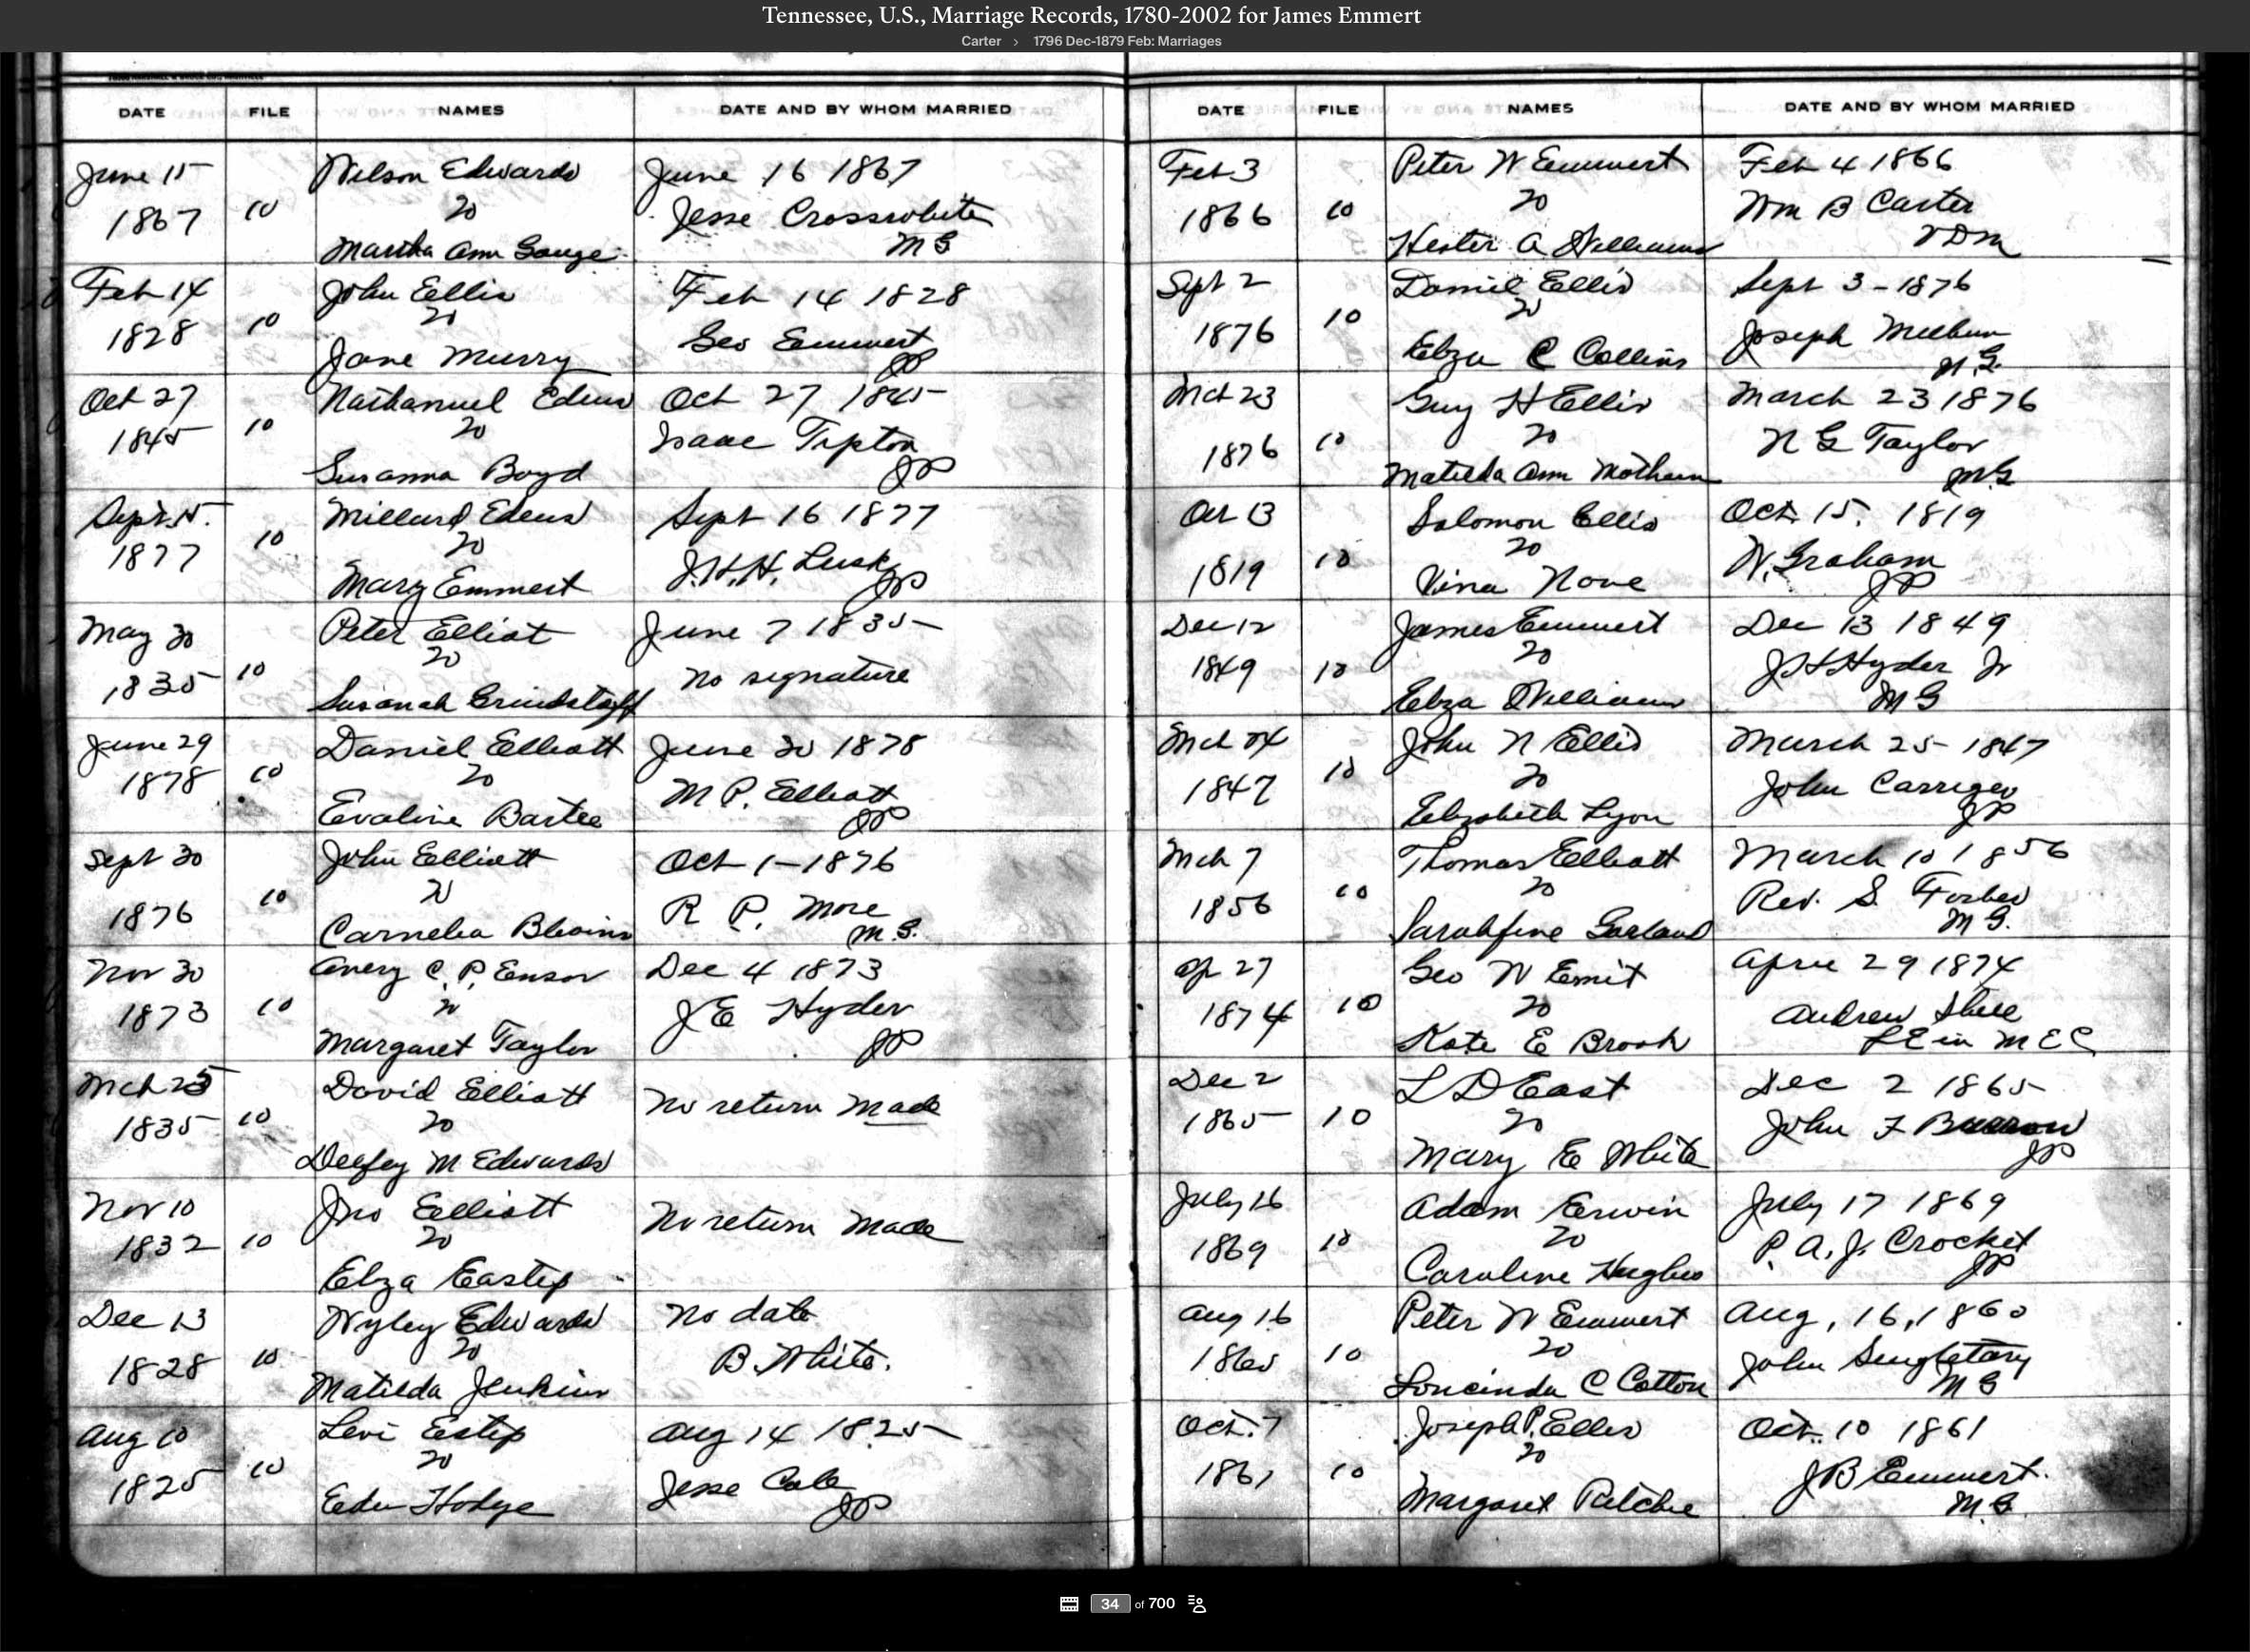 Tennessee, U.S., Marriage Records, 1780-2002 for James Emmert
Carter › 1796 Dec-1879 Feb: Marriages
DATE FILE NAMES DATE AND BY WHOM MARRIED
June 15 Wilson Edwards June 16 1867
1867 10 20 Jesse Crosswhite
Martha Ann Gouge M G
Feb 14 John Ellis Feb 14 1828
1828 10 20 Geo Emmert
Jane Murry JP
Oct 27 Nathanuel Edens Oct 27 1845
1845 10 20 Isaac Tipton
Susanna Boyd JP
Sept 15. Millard Edens Sept 16 1877
1877 10 20 J.H.H. Lusk
Mary Emmert JP
May 30 Peter Elliot June 7 1835
1835 10 20 No signature
Susanah Grindstaff
June 29 Daniel Elliott June 30 1878
1878 10 20 M P. Elliott
Evaline Bartee JP
Sept 30 John Elliott Oct 1-1876
1876 10 20 R P. More
Carnelia Blevins M.G.
Nov 30 Avery C. P. Ensor Dec 4 1873
1873 10 20 J E Hyder
Margaret Taylor JP
Mch 25 David Elliott No return made
1835 10 20
M Edwards
Nov 10 Jno Elliott No return made
1832 10 20
Eliza Eastep
Dec 13 Wyley Edwards No date
1828 10 20 B. White.
Matilda Jenkins
Aug 10 Levi Estep Aug 14 1825
1825 10 20 Jesse Cole
Hodge JP
DATE FILE NAMES DATE AND BY WHOM MARRIED
Feb 3 Peter W Emmert Feb 4 1866
1866 10 20 Wm B Carter
Hester A Williams VDM
Sept 2 Daniel Ellis Sept 3-1876
1876 10 20 Joseph Milburn
Eliza C Collins M.G.
Mch 23 Guy H Ellis March 23 1876
1876 10 20 N G Taylor
Matilda Ann M.G
Oct 13 Solomon Ellis Oct. 15. 1819
1819 10 20 W. Graham
Vina Nove JP
Dec 12 James Emmert Dec 13 1849
1849 10 20 J H Hyder Jr
Eliza Williams M G
Mch 24 John N Ellis March 25 1847
1847 10 20 John Carriger
Elizabeth Lyon JP
Mch 7 Thomas Elliott March 10 1856
1856 10 20 Rev. S. Forbes
Sarahfine Garland M G.
Ap 27 Geo W Emit April 29 1874
1874 10 20 Andrew Shell
Kate E Brook LE in M E C
Dec 2 L D East Dec 2 1865
1865 10 20 John F Burrow
Mary E White JP
July 16 Adam Erwin July 17 1869
1869 10 20 P. A. J. Crocket
Caroline Hughes JP
Aug 16 Peter W Emmert Aug, 16, 1860
1860 10 20 John Singletary
Loucinda C Cotton M G
Oct. 7 Joseph P. Ellis Oct. 10 1861
1861 10 20 J B Emmert.
Margaret Ritchie M.G.
34 of 700